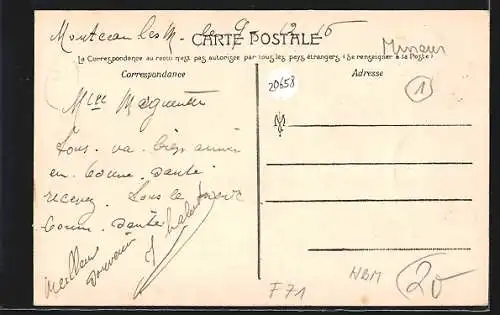 Montceau les M. le 9 - 12 15
CARTE POSTALE
Mineurs
La Correspondance au recto n'est pas autorisée par tous les pays étrangers (Se renseigner à la Poste)
Correspondance
Adresse
20658
1
Mlle
Tous va bien
en bonne santé
recevez Tous le
bonne santé
meilleur
souvenir
F71
NBM
20